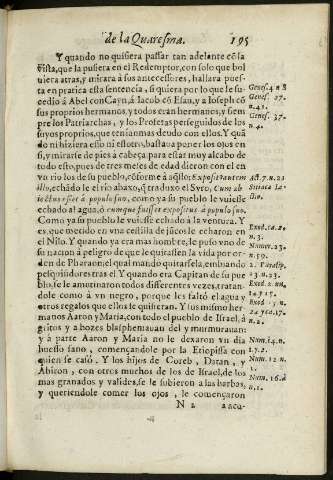 de la Quaresma. 195
Y quando no quisiera passar tan adelante cõ la
vista, que la pusiera en el Redemptor, con solo que bol
uiera atras, y mirara à sus antecessores, hallara pues-
ta en pratica esta sentencia, si quiera por lo que le su-
cedio à Abel con Cayn, à Iacob cõ Esau, y a Ioseph cõ
sus proprios hermanos, y todos eran hermanos, y siem
pre los Patriarchas, y los Profetas perseguidos de los
suyos proprios, que tenían mas deudo con ellos. Y quã
do ni hiziera esso ni estotro, bastaua poner los ojos en
si, y mirarse de pies à cabeça para estar muy alcabo de
todo esto, pues de tres meles de edad dieron con el en
vn rio los de su pueblo, cõforme à aquello: Expositum autem
illo, echado le el rio abaxo, q̃ traduxo el Syro, Cum ab
iectus esset à populo suo, como ya su pueblo le vuiesse
echado al agua, ò cumque fuisset expositus à populo suo.
Como ya su pueblo le vuiesse echado à la ventura. Y
es, que metido en vna cestilla de juncos le echaron en
el Nilo. Y quando ya era mas hombre, le puso vno de
su nacion à peligro de que le quitassen la vida por or-
den de Pharaon el qual mando quitarsela, embiando
pesquisidores tras el Y quando era Capitan de su pue
blo, se le amotinaron todos differentes vezes, tratan-
dole como à vn negro, porque les faltò el agua y
otros regalos que ellos se quisieran. Y sus mismos her-
manos Aaron y Maria, con todo el pueblo de Israel, à
gritos y a bozes blasphemauan del y murmurauan:
y à parte Aaron y Maria no le dexaron vn dia
huesso sano, començandole por la Etiopissa con
quien se casò. Y los hijos de Coreb, Datan, y
Abiron, con otros muchos de los de Israel, de los
mas granados y valides, se le subieron a las barbas,
y queriendole comer los ojos, le començaron
N 2 a acu-
Genes. 4. n 8
Genes. 27.
n. 41.
Genes. 37.
n. 4.
Act. 7. n. 21
Exod. ca. 2.
n. 3.
n. 2.
Num. 14. n.
Num. 12. n.
1.
Num. 16. à
n. 1.